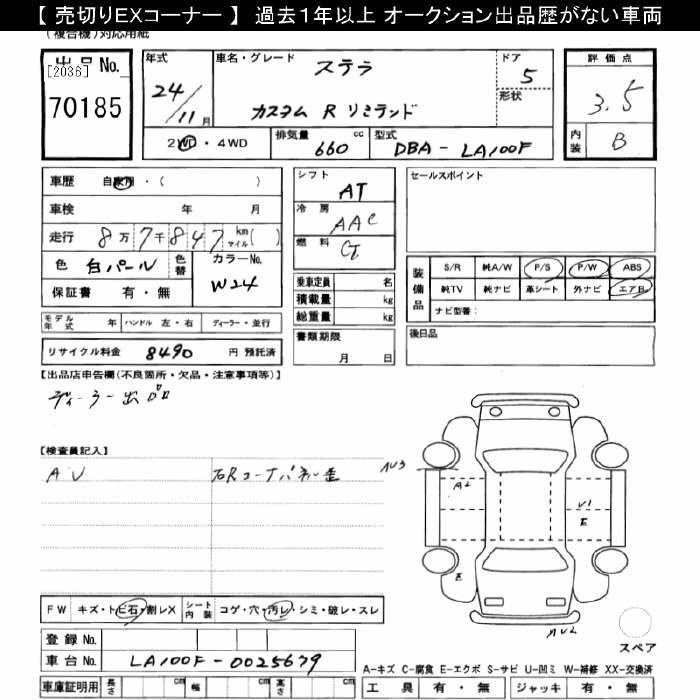 【 売切りEXコーナー 】 過去1年以上 オークション出品歴がない車両
(複合機)対応用紙
出品 No. [2036]
70185
年式 24/11月
車名・グレード ステラ
カスタム R リミテッド
ドア 5
形状
評価点 3.5
内装 B
2WD・4WD
排気量 660 cc
型式 DBA-LA100F
車歴 自家用・( )
車検 年 月
走行 8万7千847 km マイル( )
色 白パール 色替
カラーNo. W24
保証書 有・無
モデル年式 年 ハンドル 左・右 ディーラー・並行
リサイクル料金 8490 円 預託済
シフト AT
冷房 AAC
燃料 G
乗車定員 名
積載量 kg
総重量 kg
書類期限
月 日
セールスポイント
装備品
S/R 純A/W P/S P/W ABS
純TV 純ナビ 革シート 外ナビ エアB
ナビ型番:
後日品
【出品店申告欄(不良箇所・欠品・注意事項等)】
ディーラー出品
【検査員記入】
AU 右Rコーナパネル歪
AU3
A2
U1
E
E
AU2
スペア
FW キズ・トビ石・割レX シート内装 コゲ・穴・汚レ・シミ・破レ・スレ
登録 No.
車台 No. LA100F-0025679
車庫証明用 長さ cm 幅 cm 高さ cm
A-キズ C-腐食 E-エクボ S-サビ U-凹ミ W-補修 XX-交換済
工具 有・無 ジャッキ 有・無